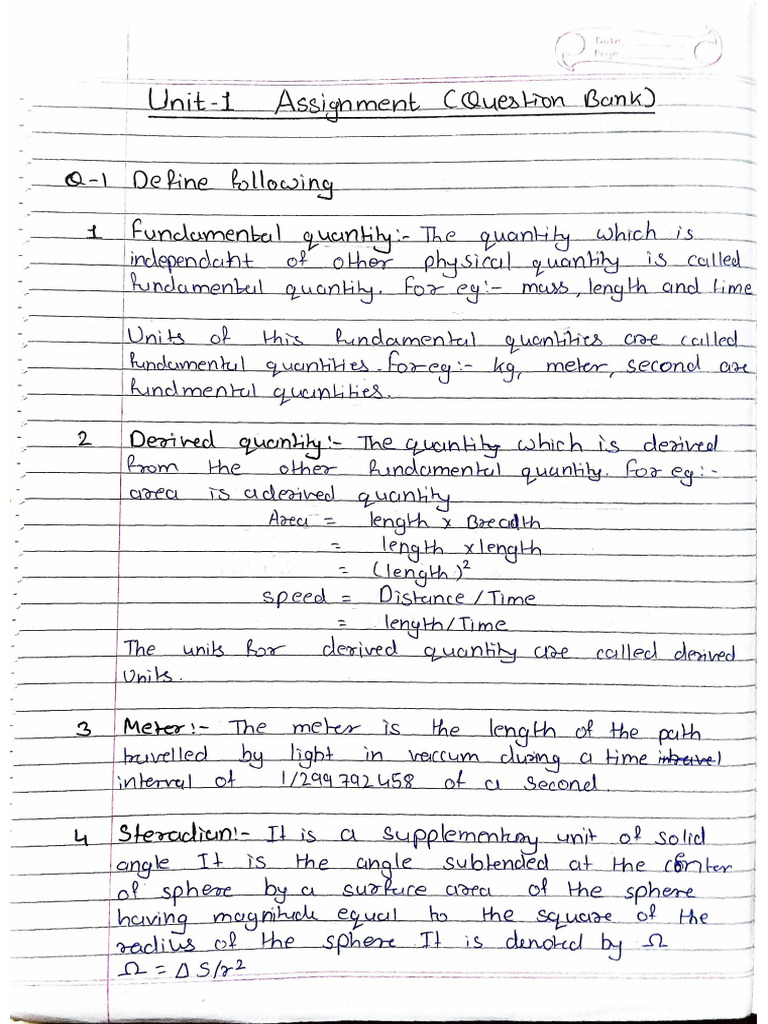 Date
Page
Unit-1 Assignment (Question Bank)
Q-1 Define following
1 Fundamental quantity:- The quantity which is
independant of other physical quantity is called
fundamental quantity. For eg:- mass, length and time
Units of this fundamental quantities are called
fundamental quantities. For eg:- kg, meter, second are
fundmental quantities.
2 Derived quantity:- The quantity which is derived
from the other fundamental quantity. For eg:-
area is a derived quantity
Area = length x Breadth
= length x length
= (length)²
speed = Distance / Time
= length/Time
The units for derived quantity are called derived
units.
3 Meter:- The meter is the length of the path
travelled by light in vaccum during a time intravel
interval of 1/299792458 of a second.
4 Steradian:- It is a supplementary unit of solid
angle It is the angle subtended at the center
of sphere by a surface area of the sphere
having magnitude equal to the square of the
radius of the sphere It is denoted by Ω
Ω = Δ S/r²